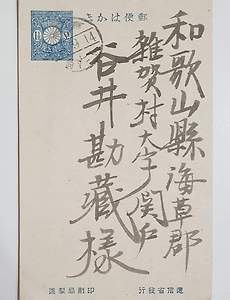 郵便はかき
和歌山縣海草郡
雑賀村大字関戸
谷井勘藏様
逓信省発行
印刷局製造